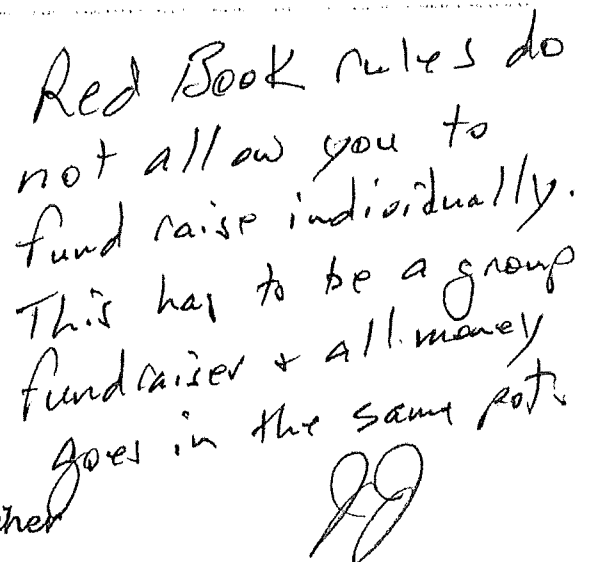 Red Book rules do
not allow you to
fund raise individually.
This has to be a group
fundraiser + all money
goes in the same pot.
JJ